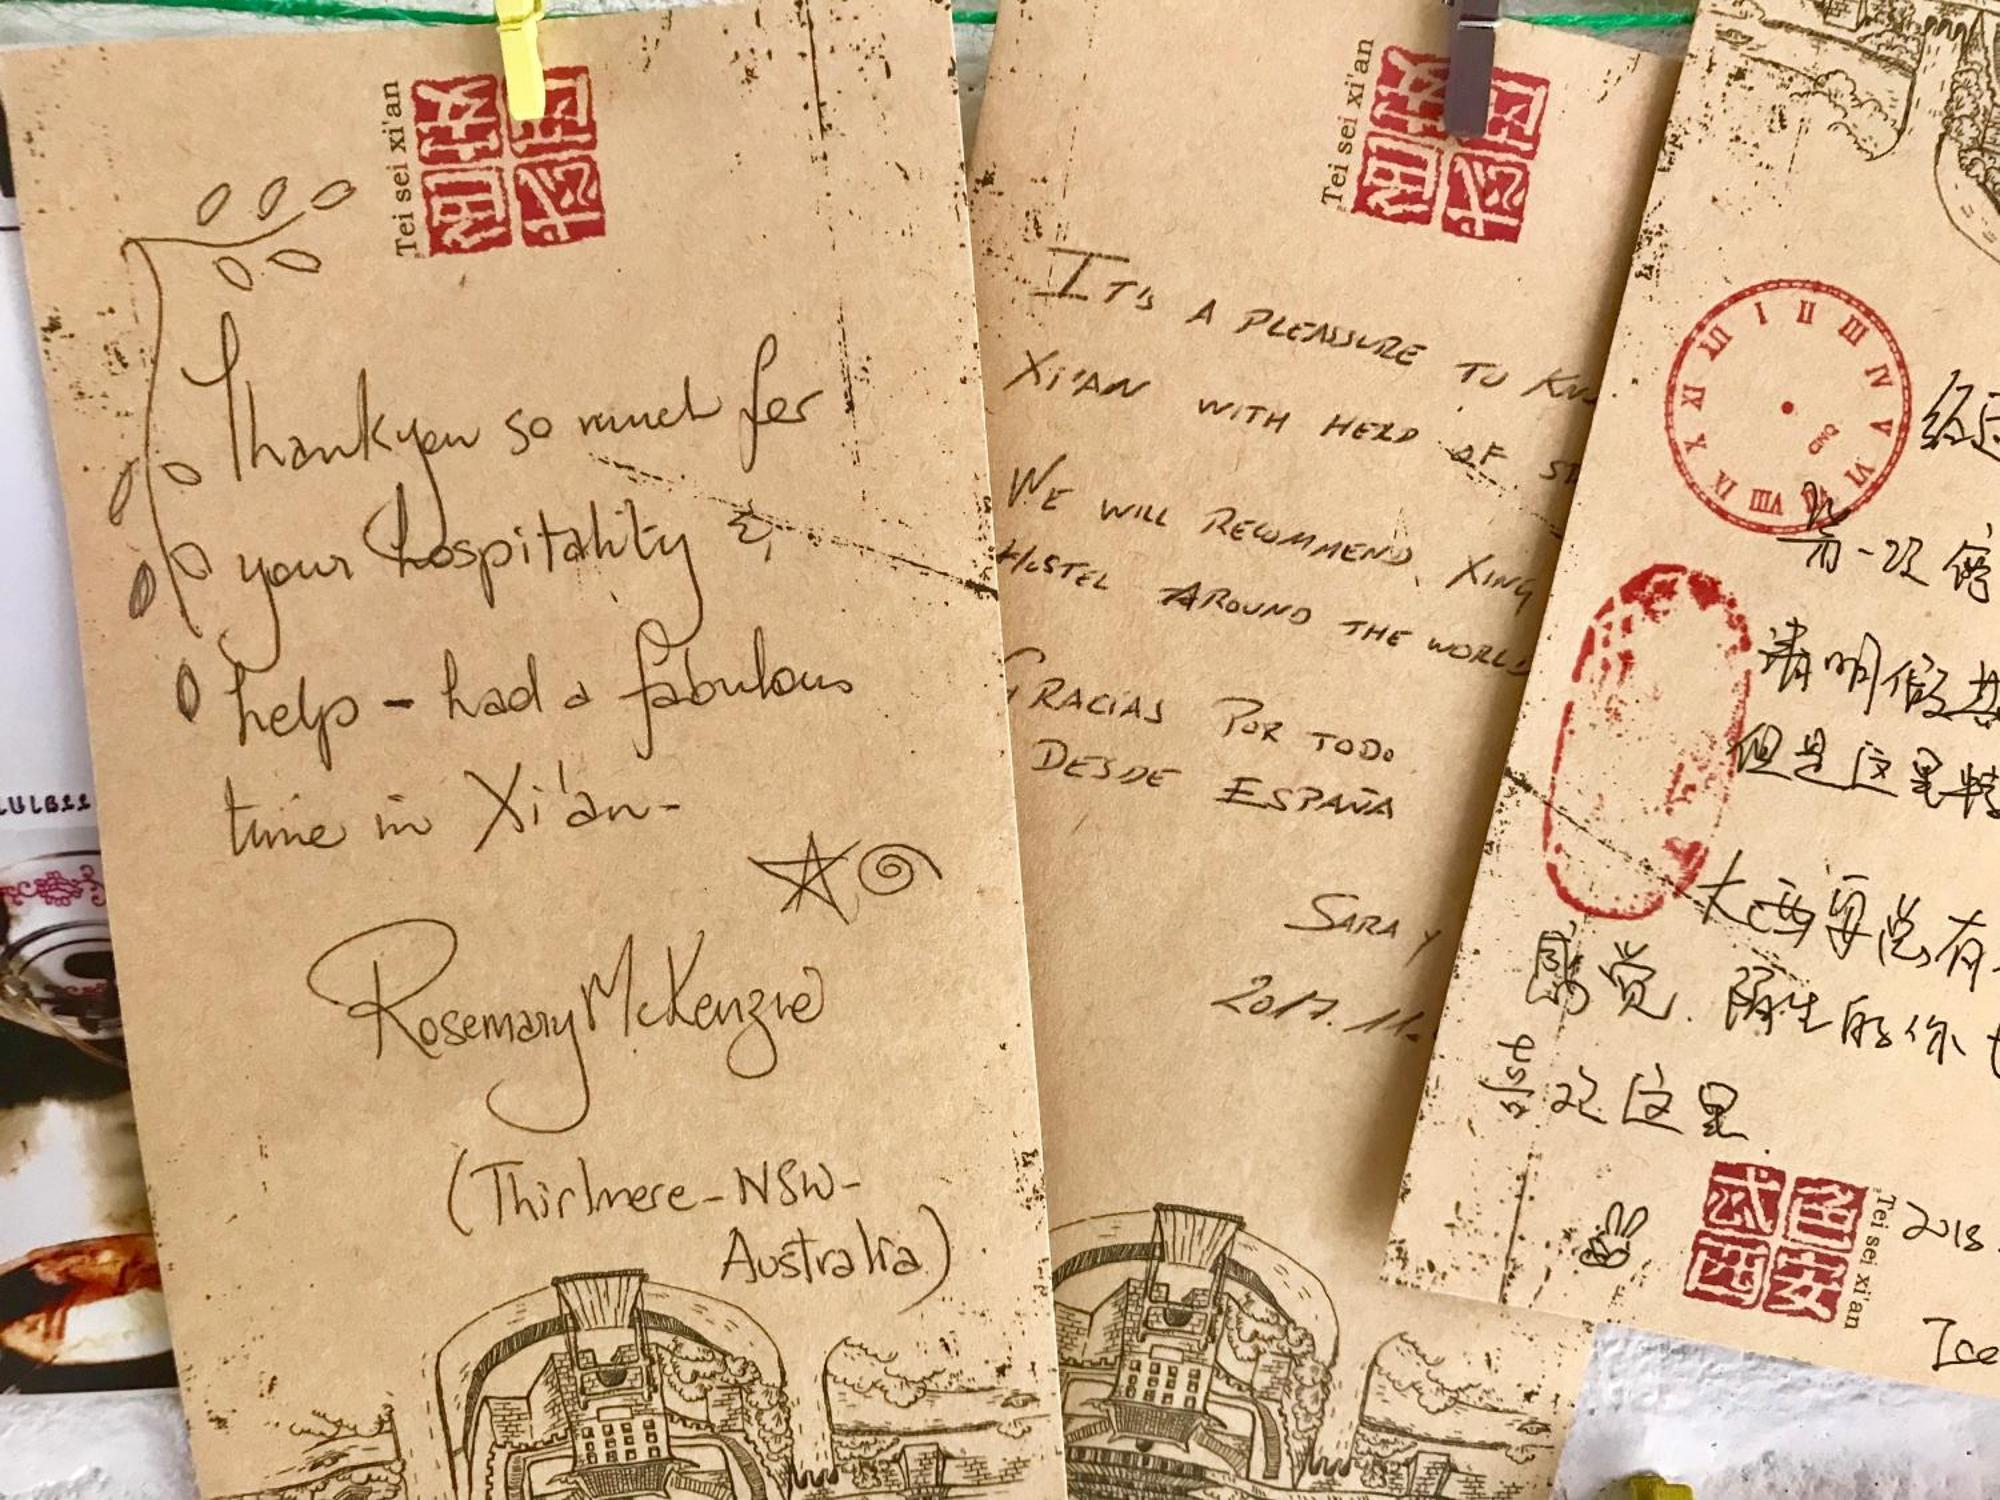 Tei sei xi'an
Thankyou so much for
your hospitality &
help - had a fabulous
time in Xi'an-
Rosemary McKenzie
(Thirlmere - NSW -
Australia)
Tei sei xi'an
IT'S A PLEASSURE TO
XI'AN WITH HERD OF
WE WILL RECOMMEND XING
HOSTEL AROUND THE WORLD
GRACIAS POR TODO
DESDE ESPAÑA
SARA Y
2017.11.
I II III IV V VI VII VIII IX X XI XII
第一次
清明假
但是这里特
大西
感觉. 陌生的你
喜欢这里
Tei sei xi'an
2018.
Ice